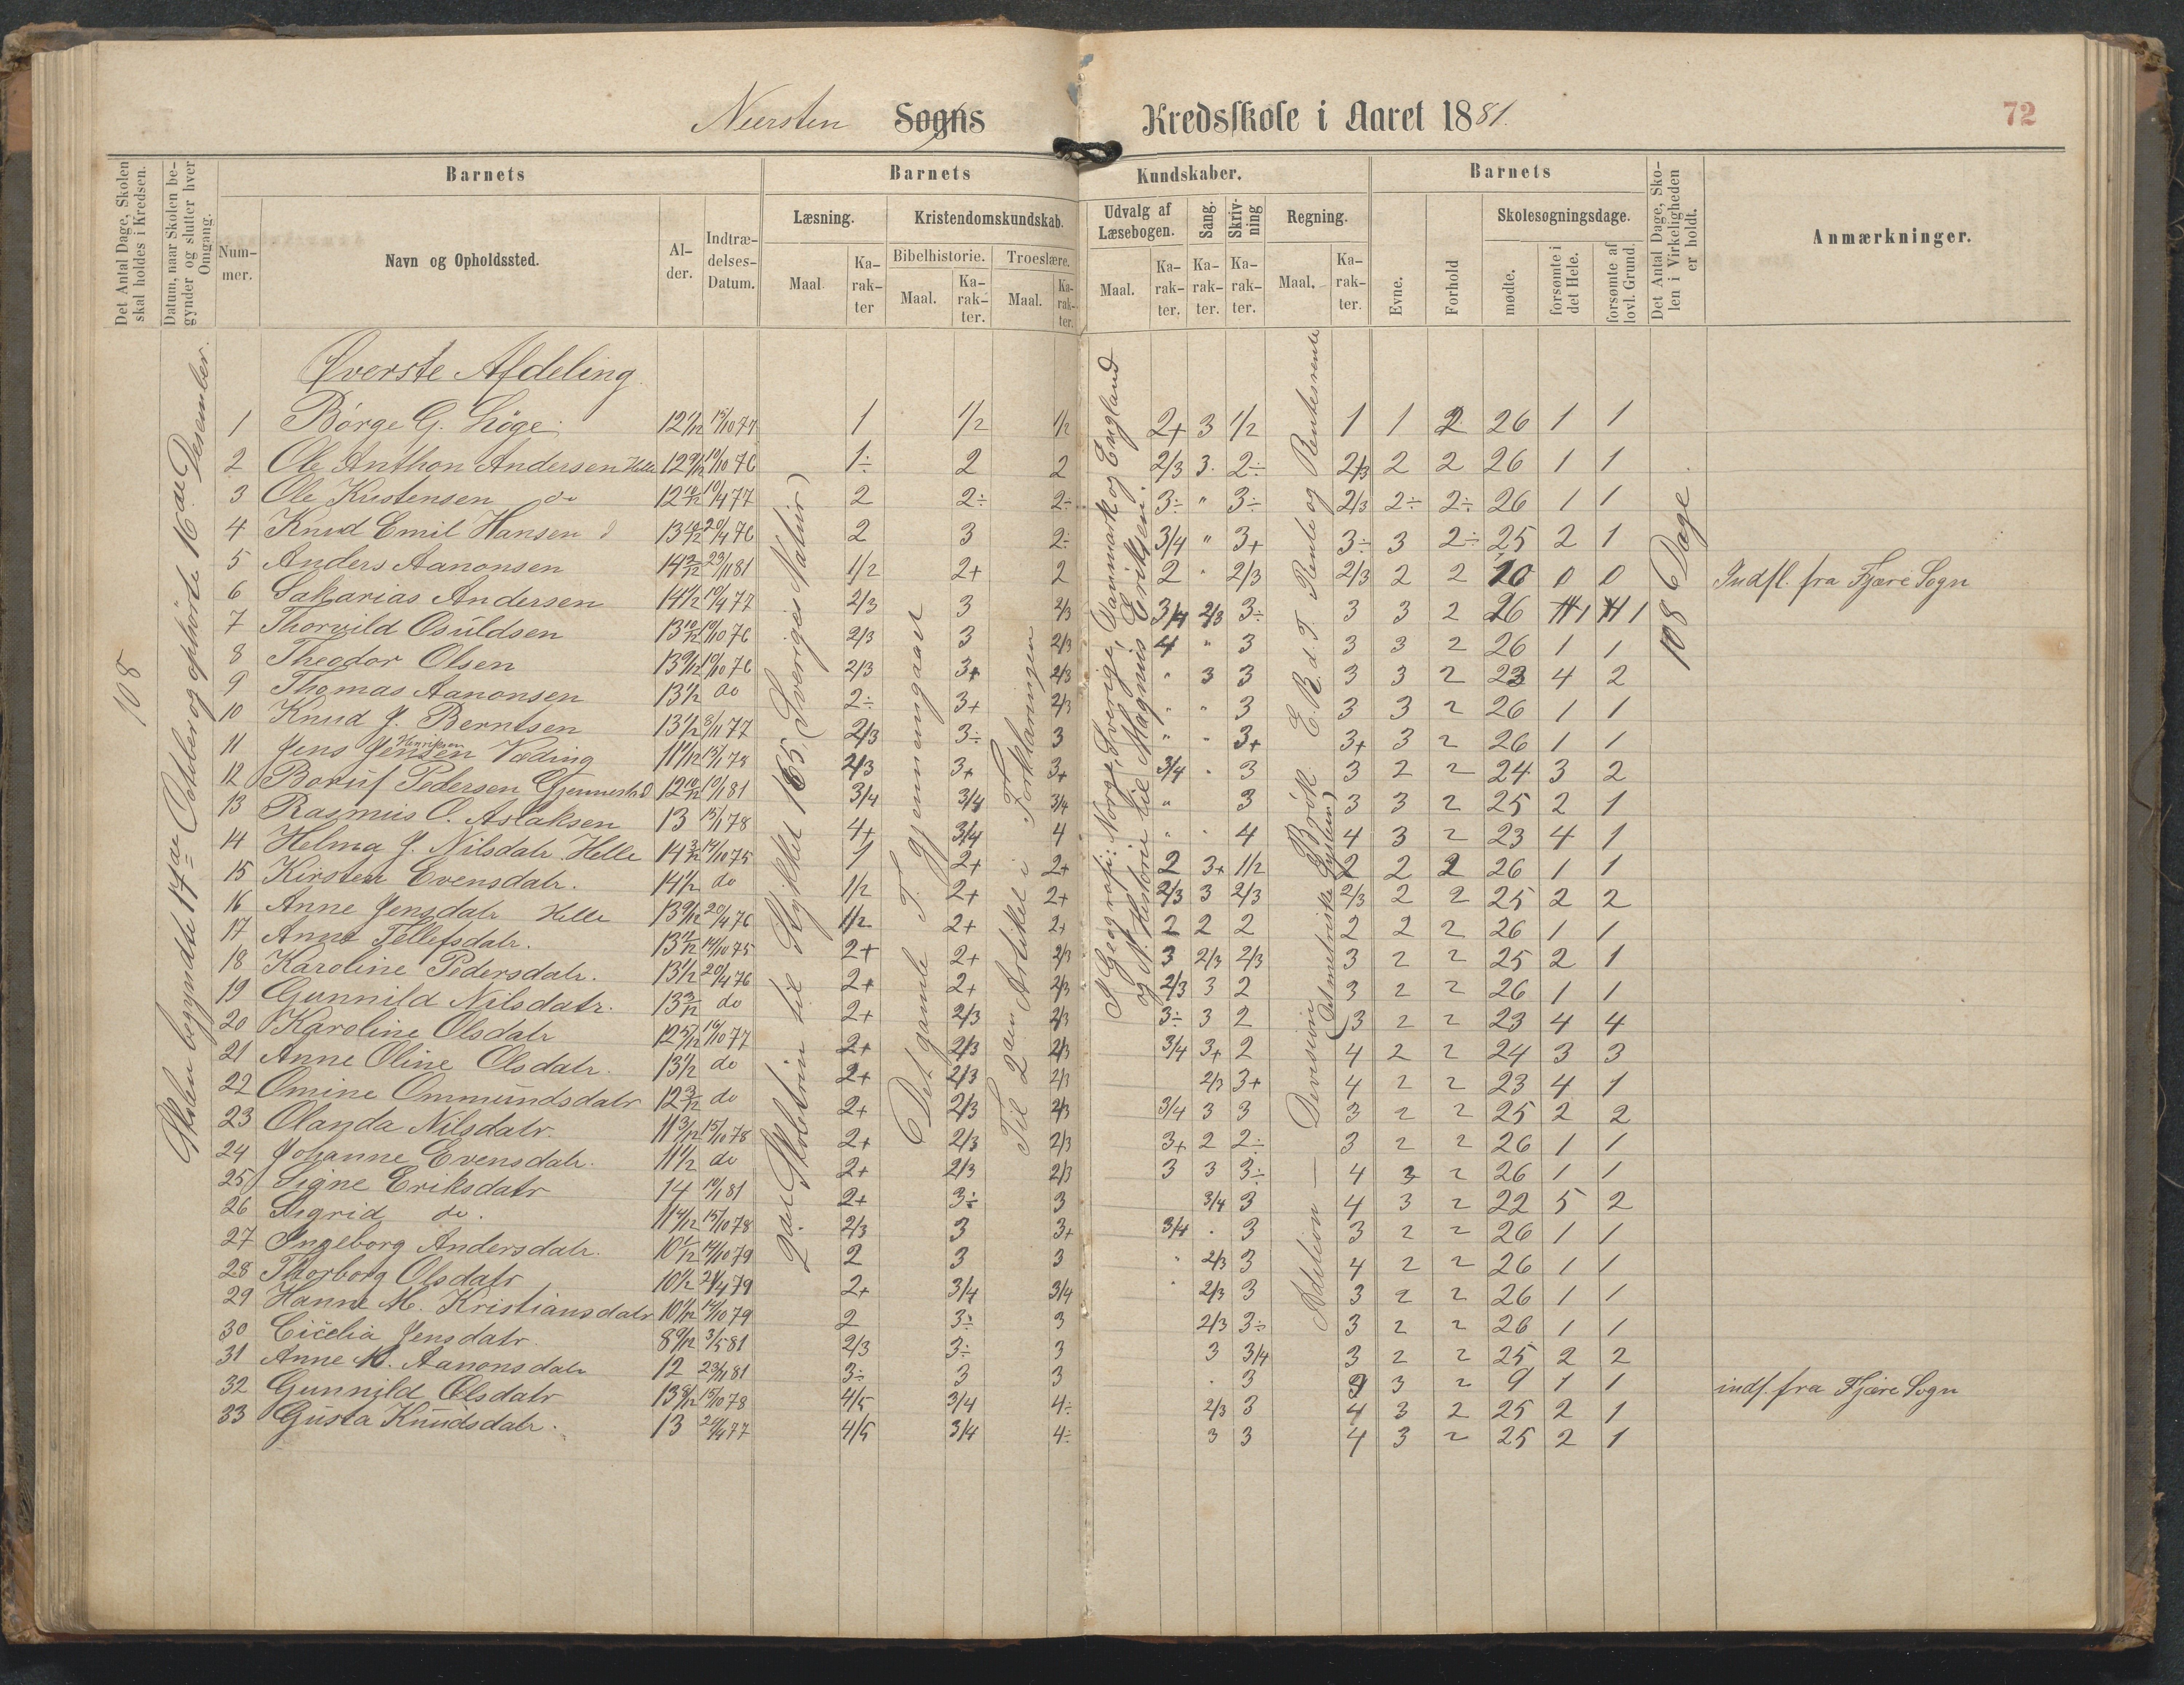 Neersten Sogns Kredsskole i Aaret 1881.
72
Det Antal Dage, Skolen skal holdes i Kredsen.
Datum, naar Skolen begynder og slutter hver Omgang.
Barnets
Nummer.
Navn og Opholdssted.
Alder.
Indtrædelses-Datum.
Barnets Kundskaber.
Læsning.
Maal.
Karakter
Kristendomskundskab.
Bibelhistorie.
Maal.
Karakter.
Troeslære.
Maal.
Karakter.
Udvalg af Læsebogen.
Maal.
Karakter.
Sang.
Karakter.
Skrivning
Karakter.
Regning.
Maal.
Karakter.
Barnets
Evne.
Forhold
Skolesøgningsdage.
mødte.
forsømte i det Hele.
forsømte af lovl. Grund.
Det Antal Dage, Skolen i Virkeligheden er holdt.
Anmærkninger.
108
Skolen begyndte 17de Oktober og ophörte 16de Desember.
2den Skoletrin til Stykket 165, (Sveriges Natur)
Det gamle T. gjennemgaaet
Til 2den Artikel i Forklaringen
I Geografi: Norge, Sverige, Danmark og England
og N. Historie til Magnus Eriksen.
Addition — Devision
(Det metriske System)
Brök. E. R. d. T. Rente og Rentesrente
108 Dage
Øverste Afdeling.
1 Börge G. Löge 12 1/12 15/10 77 1 1/2 1/2 2+ 3 1/2 1 1 2 26 1 1
2 Ole Anthon Andersen Helle 12 9/12 10/10 76 1÷ 2 2 2/3 3. 2÷ 2/3 2 2 26 1 1
3 Ole Kristensen do 12 10/12 10/4 77 2 2÷ 2÷ 3÷ " 3÷ 2/3 2÷ 2÷ 26 1 1
4 Knud Emil Hansen d 13 10/12 20/4 76 2 3 2÷ 3/4 " 3+ 3÷ 3 2÷ 25 2 1
5 Anders Aanonsen 14 3/12 23/11 81 1/2 2+ 2 2 " 2/3 2/3 2 2 10 0 0 Indfl. fra Fjære Sogn
6 Sakarias Andersen 14 1/2 10/4 77 2/3 3 2/3 3/4 2/3 3÷ 3 3 2 26 1 1
7 Thorvild Osuldsen 13 10/12 10/10 76 2/3 3 2/3 4 " 3 3 3 2 26 1 1
8 Theodor Olsen 13 9/12 10/10 76 2/3 3+ 2/3 " 3 3 3 3 2 23 4 2
9 Thomas Aanonsen 13 1/2 do 2÷ 3+ 2/3 " " 3 3 3 2 26 1 1
10 Knud J. Berntsen 13 1/2 8/11 77 2/3 3÷ 3 " " 3+ 3+ 3 2 26 1 1
11 Jens Jensen Henriksen Væding 11 11/12 13/1 78 2/3 3+ 3+ 3/4 " 3 3 2 2 24 3 2
12 Boruf Pedersen Gjennestad 12 10/12 10/1 81 3/4 3/4 3/4 " 3 3 3 2 25 2 1
13 Rasmus O. Aslaksen 13 15/1 78 4+ 3/4 4 " " 4 4 3 2 23 4 1
14 Helma J. Nilsdatr. Helle 14 3/12 14/10 75 1 2+ 2+ 2 3+ 1/2 2 2 2 26 1 1
15 Kirsten Evensdatr. 14 1/2 do 1/2 2+ 2+ 2/3 3 2/3 2/3 2 2 25 2 2
16 Anne Jensdatr Helle 13 9/12 20/4 76 1/2 2+ 2+ 2 2 2 2 2 2 26 1 1
17 Anne Tellefsdatr. 13 11/12 14/10 75 2+ 2+ 2/3 3 2/3 2/3 3 2 2 25 2 1
18 Karoline Pedersdatr. 13 1/2 20/4 76 2+ 2+ 2/3 2/3 3 2 3 2 2 26 1 1
19 Gunnild Nilsdatr. 13 3/12 do 2+ 2/3 2/3 3÷ 3 2 3 2 2 23 4 4
20 Karoline Olsdatr 12 5/12 10/10 77 2+ 2/3 2/3 3/4 3+ 2 4 2 2 24 3 3
21 Anne Oline Olsdatr. 13 1/2 do 2+ 2/3 2/3 2/3 3+ 4 2 2 23 4 1
22 Omine Ommundsdatr 12 3/12 do 2+ 2/3 2/3 3/4 3 3 3 2 2 25 2 2
23 Olanda Nilsdatr. 11 3/12 15/10 78 2+ 2/3 2/3 3+ 2 2÷ 3 2 2 26 1 1
24 Johanne Evensdatr. 11 1/2 do 2+ 2/3 2/3 3 3 3÷ 4 3 2 26 1 1
25 Signe Eriksdatr 14 10/1 81 2+ 3÷ 3 3/4 3 4 3 2 22 5 2
26 Sigrid do. 11 4/12 15/10 78 2/3 3 3+ 3/4 . 3 3 2 2 26 1 1
27 Ingeborg Andersdatr. 10 1/12 14/10 79 2 3 3 " 2/3 3 4 2 2 26 1 1
28 Thorborg Olsdatr 10 1/2 21/4 79 2+ 3/4 3/4 " 2/3 3 3 2 2 26 1 1
29 Hanne M. Kristiansdatr 10 11/12 14/10 79 2 3÷ 3 2/3 3÷ 3 2 2 26 1 1
30 Cicelia Jensdatr. 8 9/12 3/5 81 2/3 3÷ 3 3 3/4 3 2 2 25 2 2
31 Anne M. Aanonsdatr 12 23/11 81 3÷ 3 3 . 3 3 3 2 9 1 1 indf. fra Fjære Sogn
32 Gunnild Olsdatr 13 8/12 15/10 78 4/5 3/4 4÷ 2/3 3 4 3 2 25 2 1
33 Gusta Knudsdatr. 13 20/4 77 4/5 3/4 4÷ 3 3 4 3 2 25 2 1